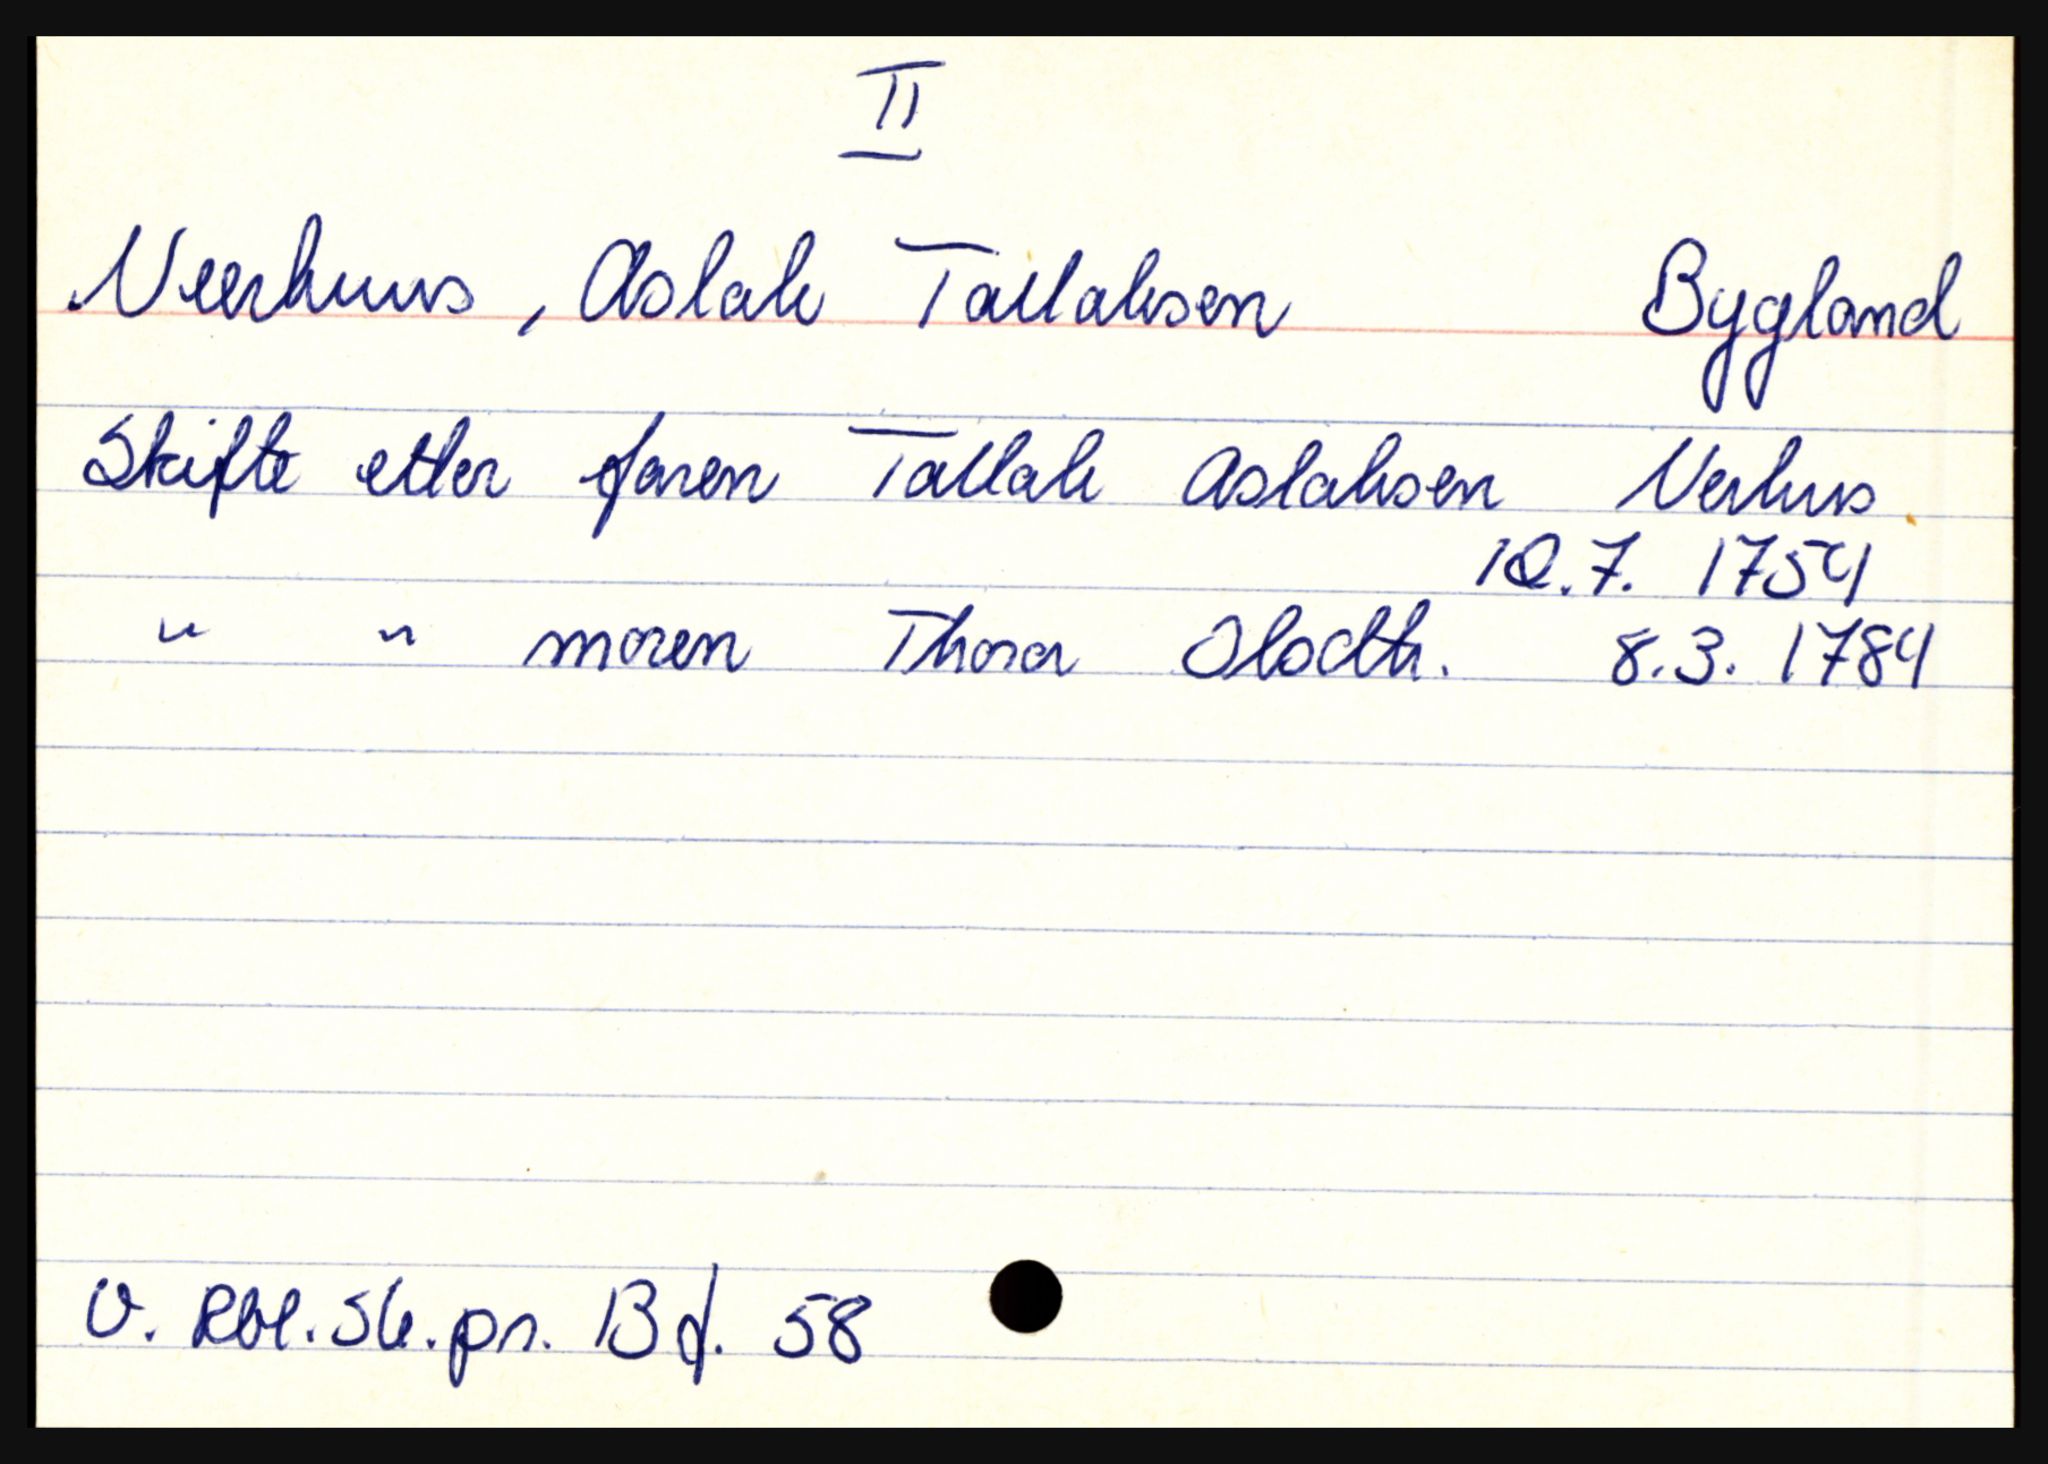 II
Neerhuus, Aslak Tallaksen Bygland
Skifte etter faren Tallak Aslaksen Nerhus
10.7. 1754
" " moren Thora Olsdtr. 8.3. 1784
V. Rbl. Sk. pr. B f. 58